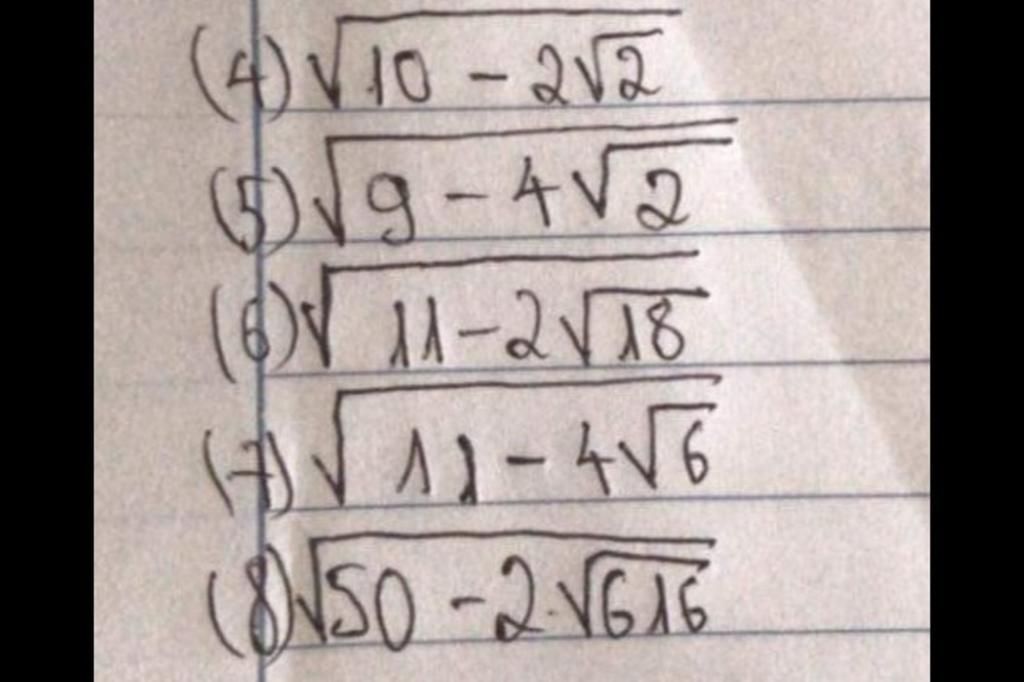 (4) √(10 - 2√2)
(5) √(9 - 4√2)
(6) √(11 - 2√18)
(7) √(11 - 4√6)
(8) √(50 - 2·√616)